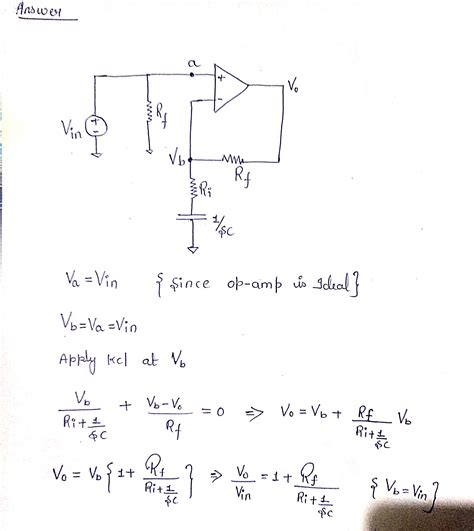 Answer
a
+
-
Vo
Vin
+
-
Rf
Vb
Rf
Ri
1/SC
Va = Vin { Since op-amp is Ideal }
Vb = Va = Vin
Apply Kcl at Vb
Vb / (Ri + 1/SC) + (Vb - Vo) / Rf = 0 ⇒ Vo = Vb + Rf / (Ri + 1/SC) Vb
Vo = Vb { 1 + Rf / (Ri + 1/SC) } ⇒ Vo / Vin = 1 + Rf / (Ri + 1/SC) { Vb = Vin }